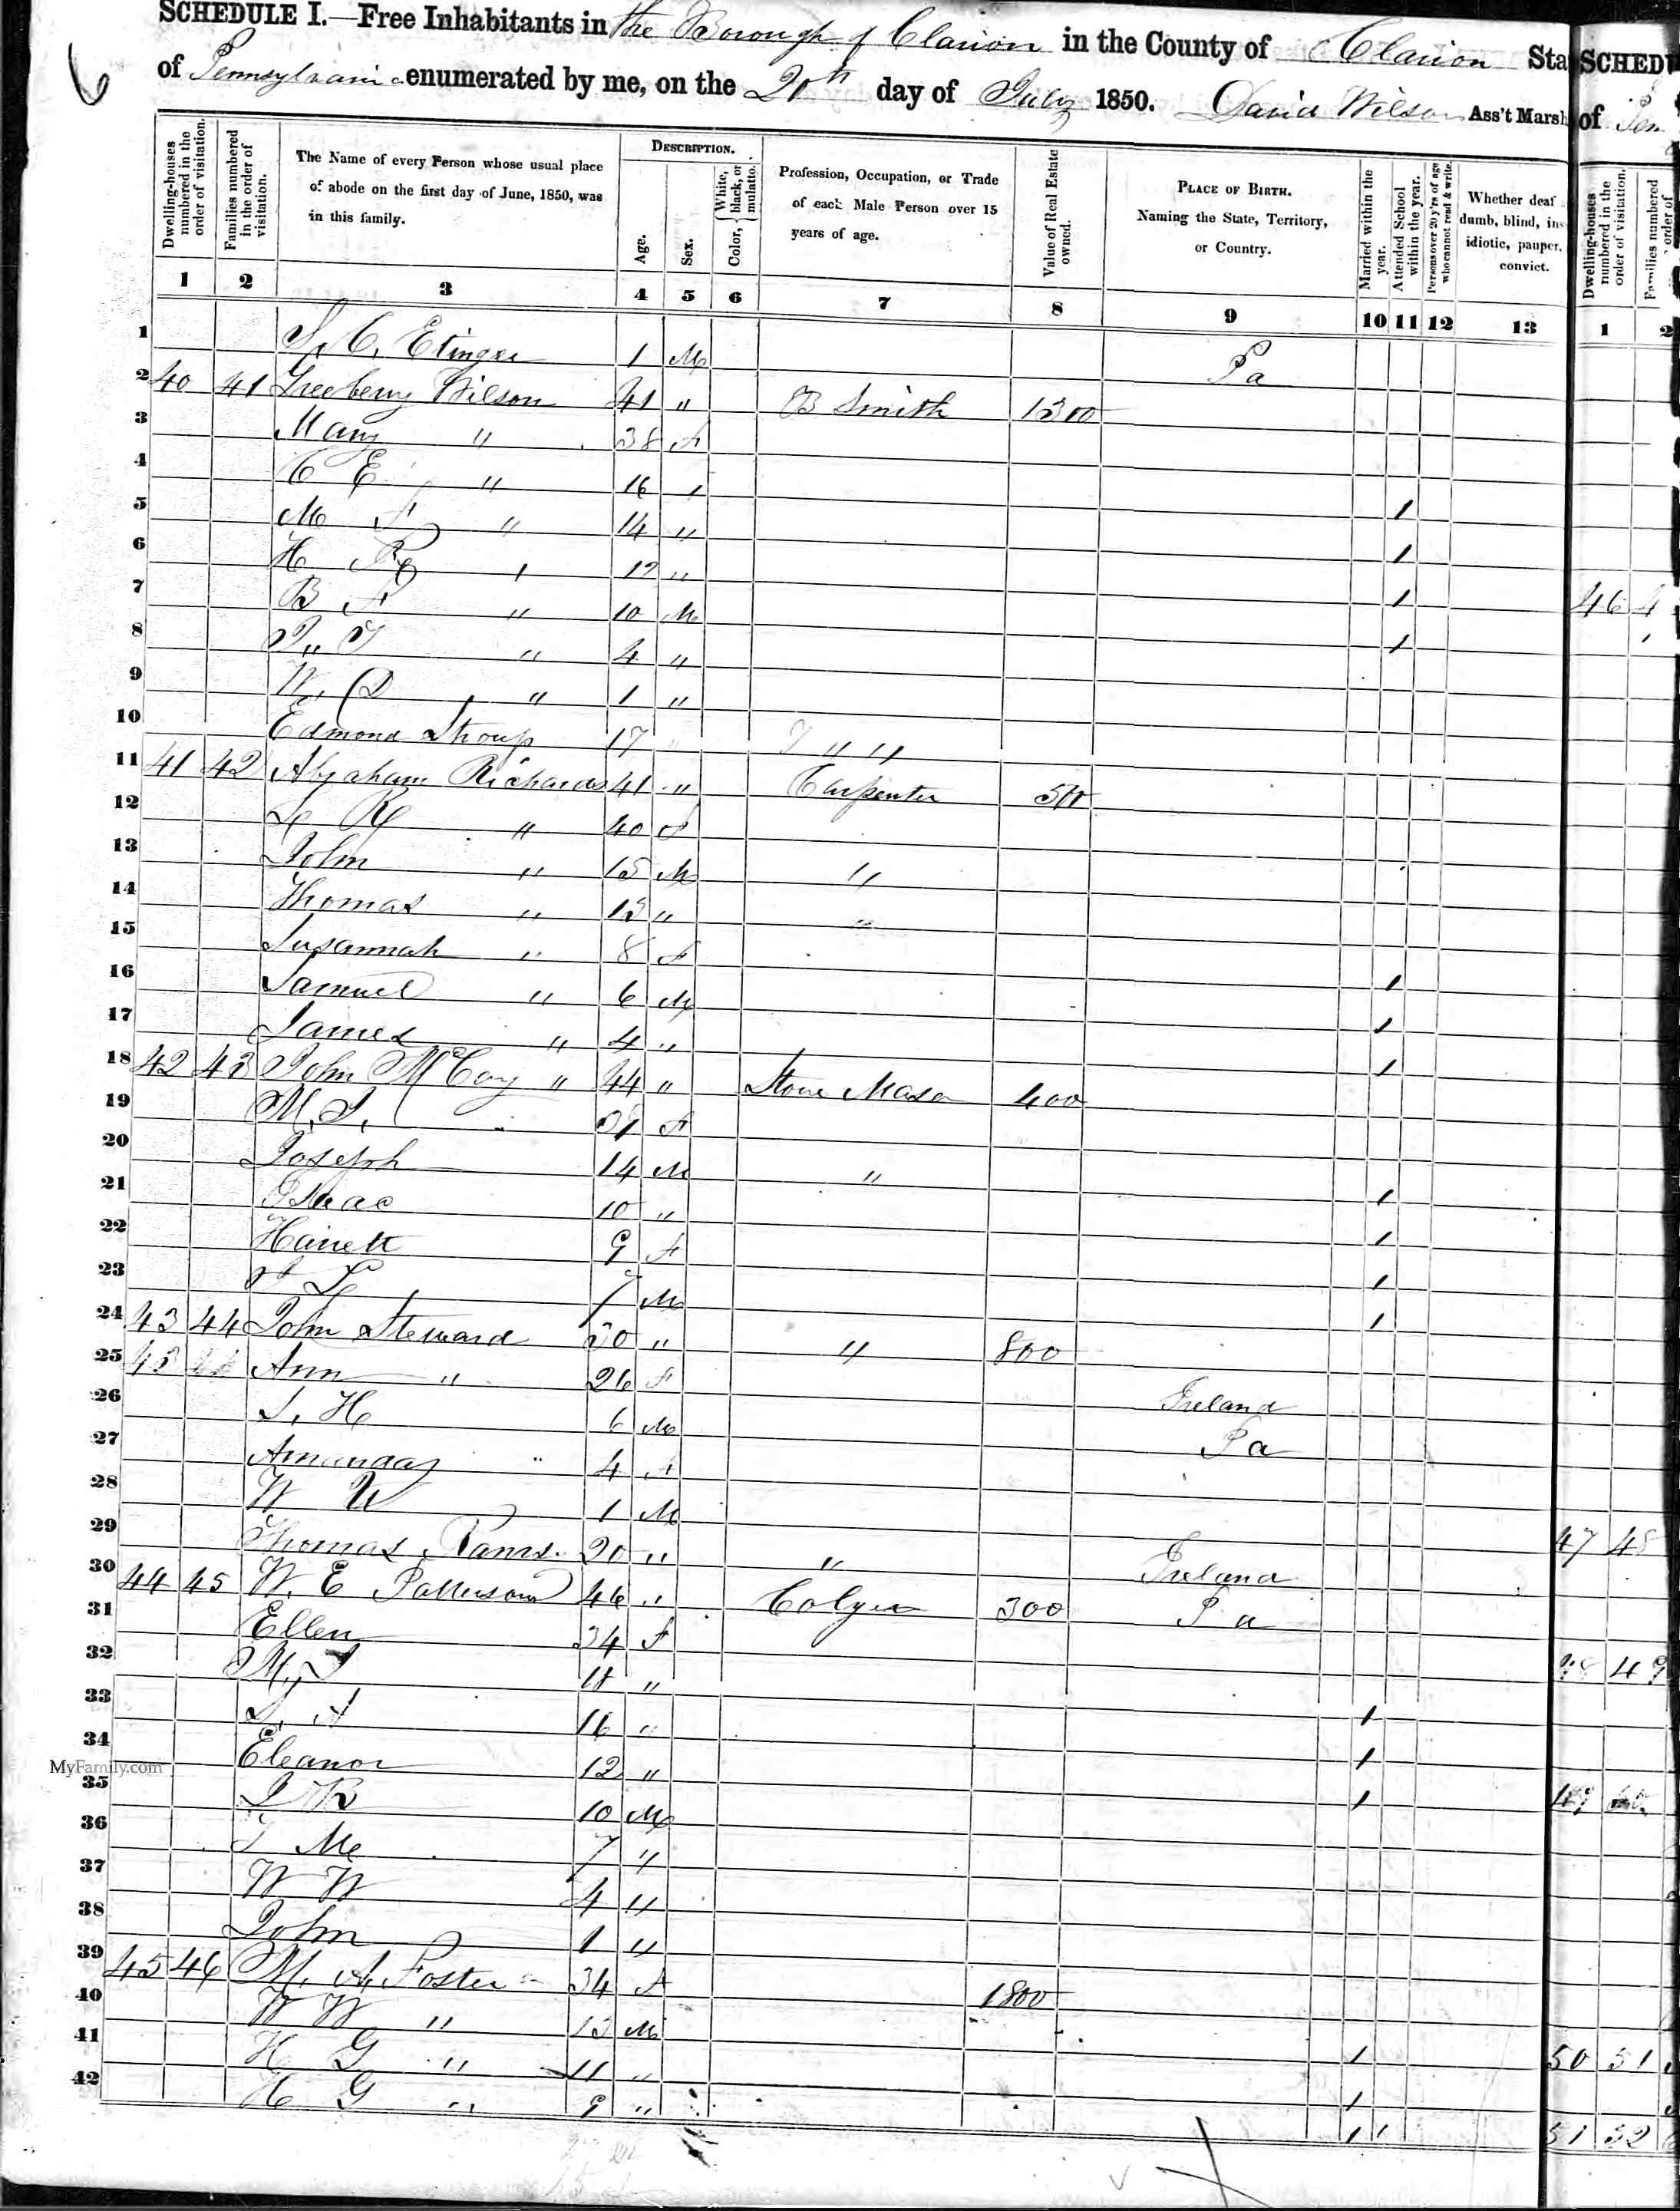 SCHEDULE I.—Free Inhabitants in the Borough of Clarion in the County of Clarion Sta
of Pennsylvania enumerated by me, on the 20th day of July 1850. David Wilson Ass't Marsh
6
Dwelling-houses numbered in the order of visitation.
Families numbered in the order of visitation.
The Name of every Person whose usual place of abode on the first day of June, 1850, was in this family.
DESCRIPTION.
Age.
Sex.
Color, White, black, or mulatto.
Profession, Occupation, or Trade of each Male Person over 15 years of age.
Value of Real Estate owned.
PLACE OF BIRTH.
Naming the State, Territory, or Country.
Married within the year.
Attended School within the year.
Persons over 20 y'rs of age who cannot read & write.
Whether deaf dumb, blind, ins idiotic, pauper, convict.
1 2 3 4 5 6 7 8 9 10 11 12 13
1 C. Etinger 1 M Pa
2 40 41 Greebeny Wilson 41 " B Smith 1300
3 Mary " 38 F
4 C E " 16 "
5 M F " 14 " 1
6 H " 12 " 1
7 B F " 10 M 1
8 " 4 " 1
9 W. D " 1 "
10 Edmond Stroup 17 " " "
11 41 42 Abraham Richards 41 " Carpenter 500
12 " 40 F
13 John " 15 M "
14 Thomas " 13 " "
15 Susannah " 8 F
16 Samuel " 6 M 1
17 James " 4 " 1
18 42 43 John McCoy " 44 " Stone Mason 400 1
19 M. J. F
20 Joseph 14 M "
21 Isaac 10 " 1
22 Hariett 9 F 1
23 7 M 1
24 43 44 John Steward 30 " " 800 1
25 43 44 Ann " 26 F Ireland
26 J. H 6 M Pa
27 Amanda " 4 F
28 W W 1 M
29 Thomas 20 " " Ireland
30 44 45 W. E Patterson 46 " Colyer 300 Pa
31 Ellen 34 F
32 M. J "
33 16 " 1
34 Eleanor 12 " 1
35 J B 10 M 1
36 J Mc 7 "
37 W W 4 "
38 John 1 "
39 45 46 M. A. Foster 34 F 1800
40 W W " 13 M
41 H G " 11 " 1
42 H G " 9 " 1
1 1
MyFamily.com
SCHEDU
of Pen
Dwelling-houses numbered in the order of visitation.
Families numbered order of
1 2
46 4
47 48
48 49
49
50 51
51 52